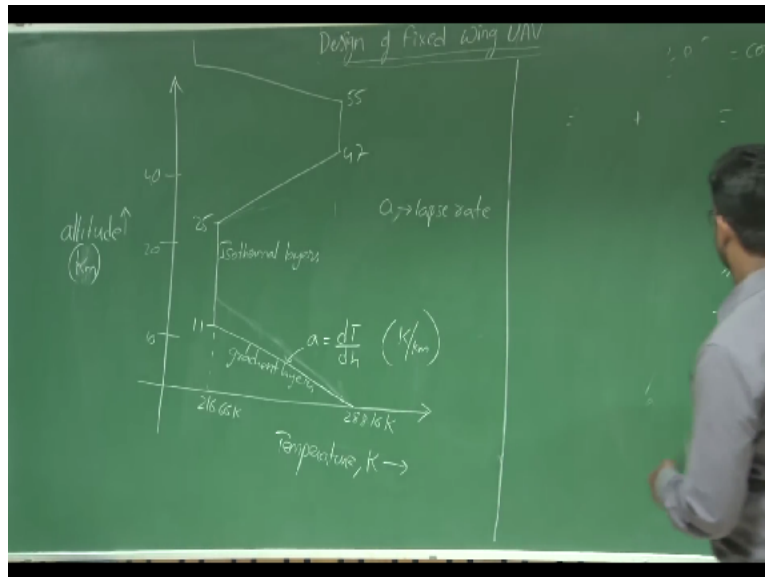 Design of Fixed Wing UAV
55
47
40
a, → lapse rate
25
altitude ↑
(Km)
20
Isothermal layers
11
a = dT/dh (K/km)
gradient layers
216.66K
288.16K
Temperature, K →